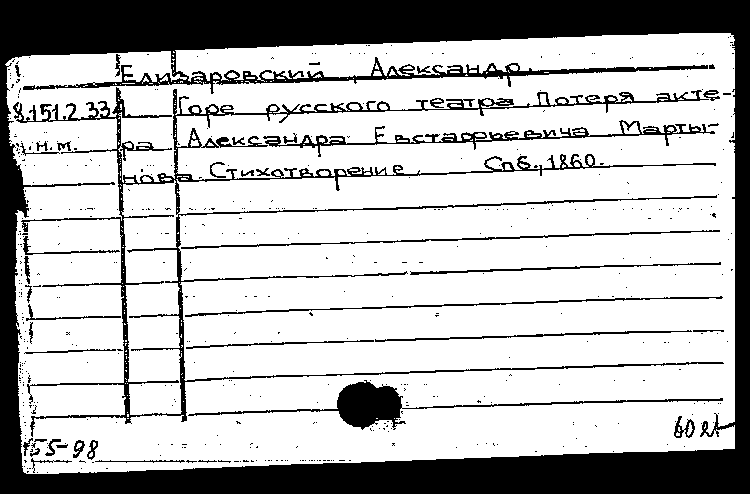 Елизаровский, Александр.
8.151.2.334. Горе русского театра. Потеря акте-
н.м. ра Александра Евстафьевича Марты-
нова. Стихотворение. Спб., 1860.
55-98